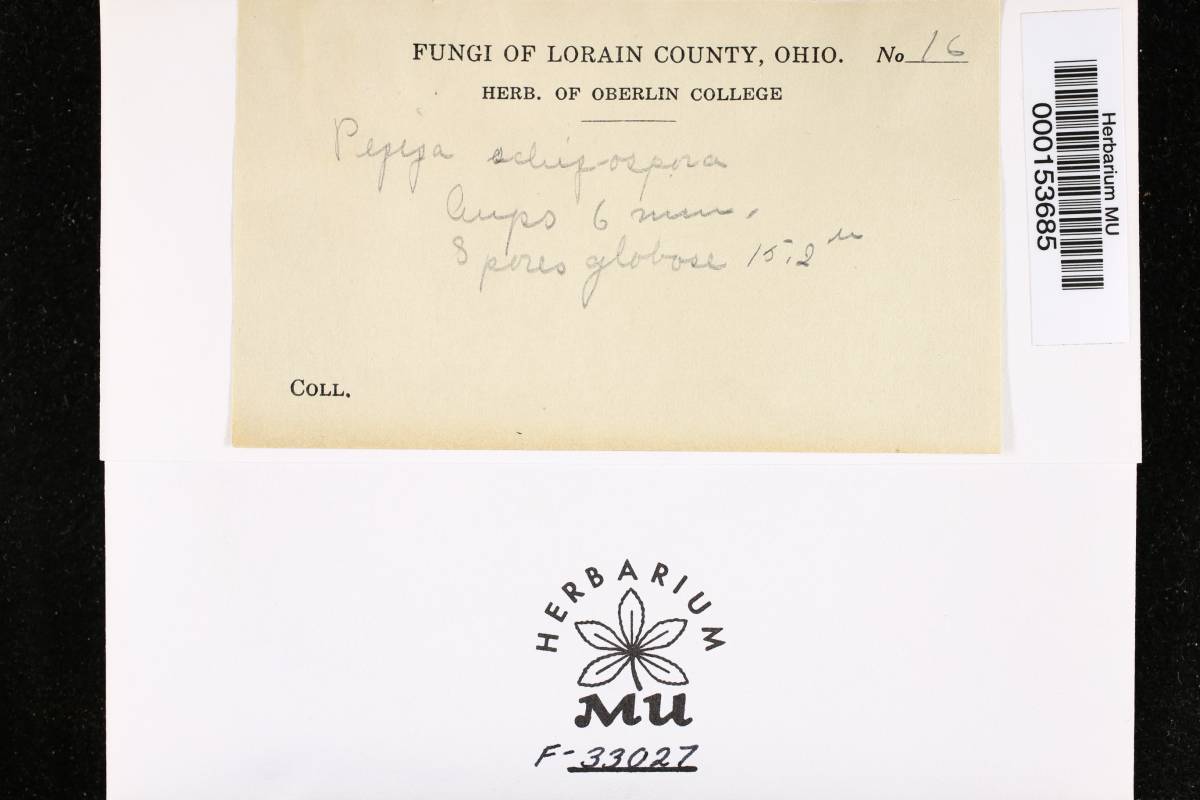 FUNGI OF LORAIN COUNTY, OHIO. No 16
HERB. OF OBERLIN COLLEGE
Peziza schizospora
Cups 6 mm.
Spores globose 15.2 u
COLL.
Herbarium MU
000153685
HERBARIUM
MU
F-33027